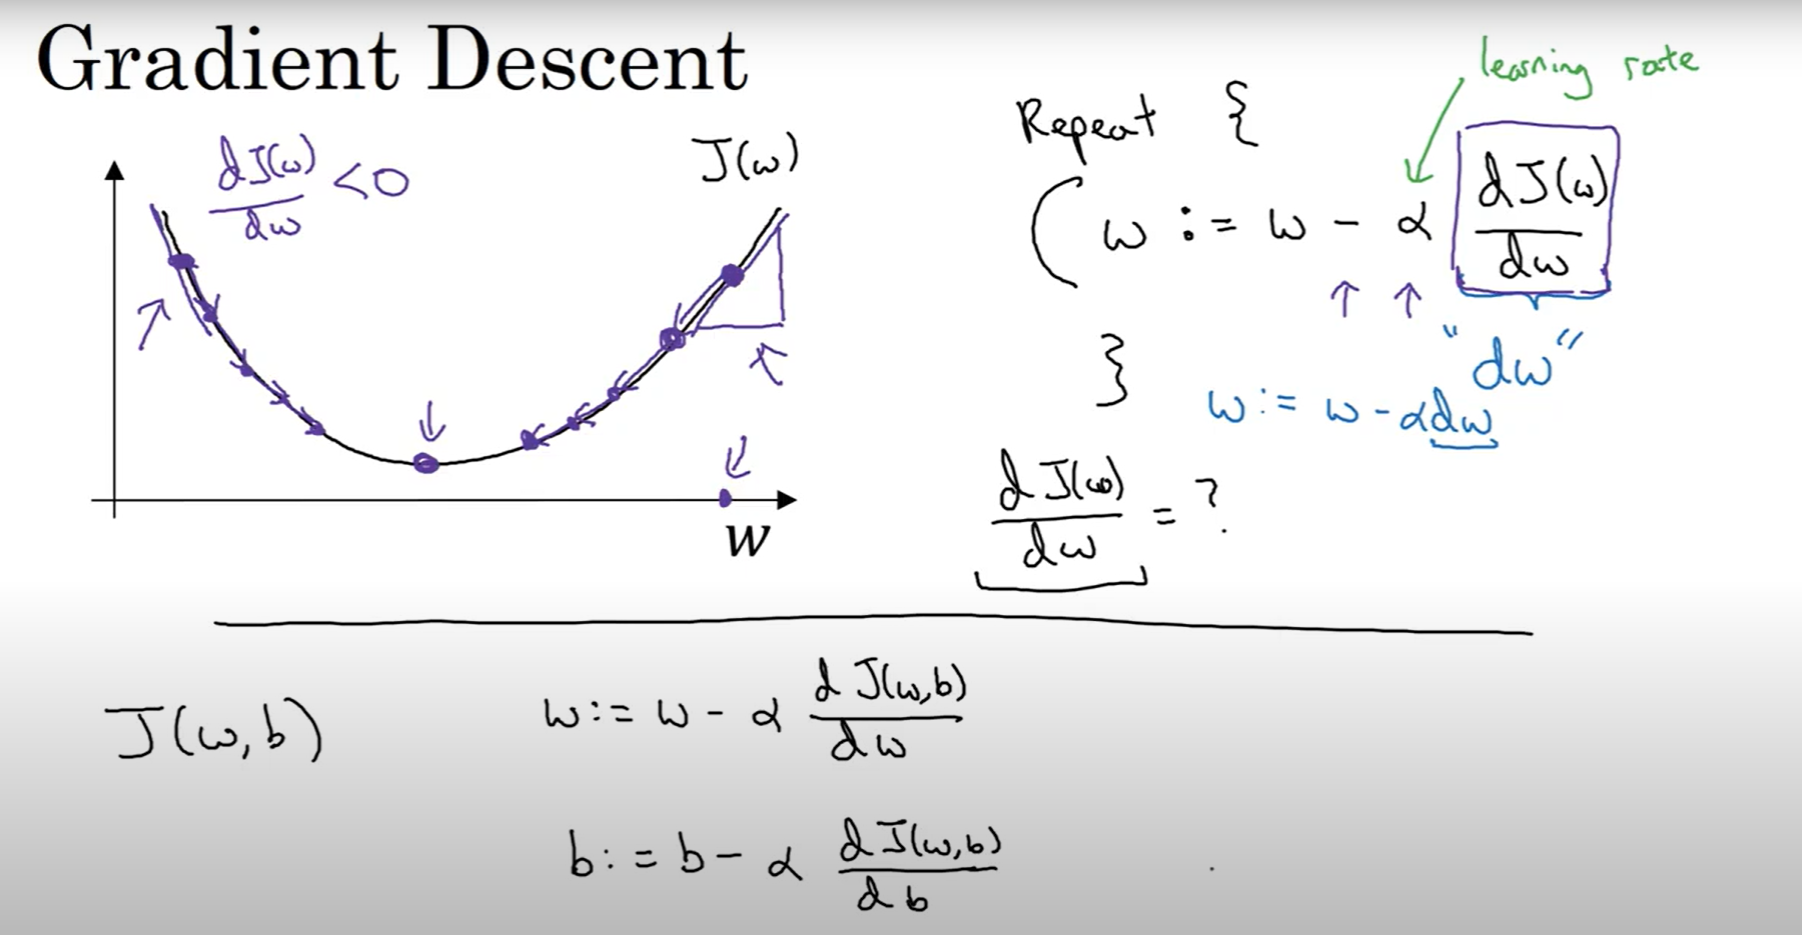 Gradient Descent
dJ(w)/dw < 0
J(w)
w
learning rate
Repeat {
w := w - α dJ(w)/dw
}
"dw"
w := w - αdw
dJ(w)/dw = ?
J(w,b)
w := w - α dJ(w,b)/dw
b := b - α dJ(w,b)/db